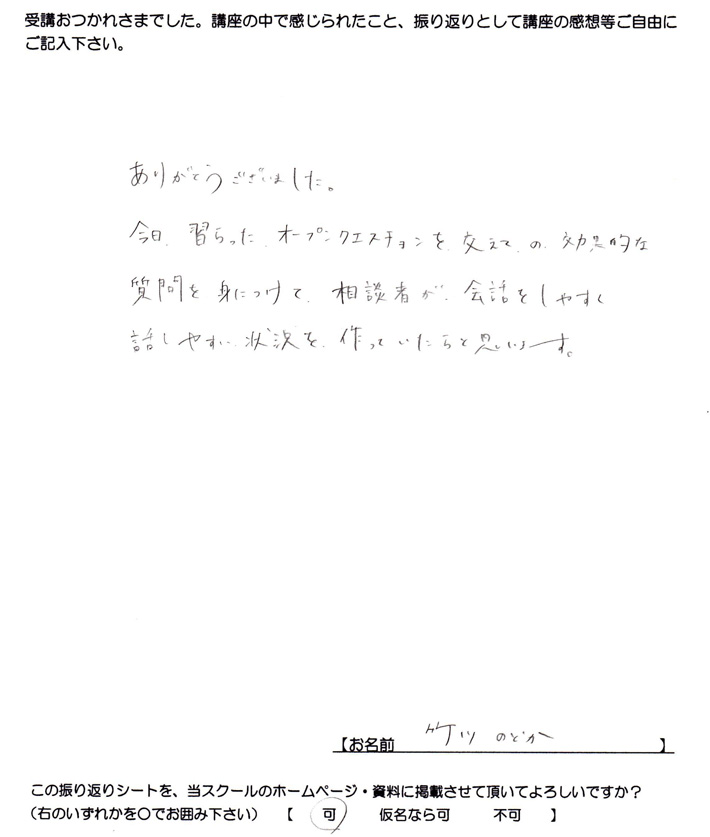 受講おつかれさまでした。講座の中で感じられたこと、振り返りとして講座の感想等ご自由に
ご記入下さい。
ありがとうございました。
今日、習らった、オープンクエスチョンを、交えて、の、効果的な
質問を身につけて、相談者が、会話をしやすく
話しやすい、状況を、作っていたらと思います。
【お名前 竹ツ のどか 】
この振り返りシートを、当スクールのホームページ・資料に掲載させて頂いてよろしいですか？
（右のいずれかを〇でお囲み下さい） 【 可 仮名なら可 不可 】